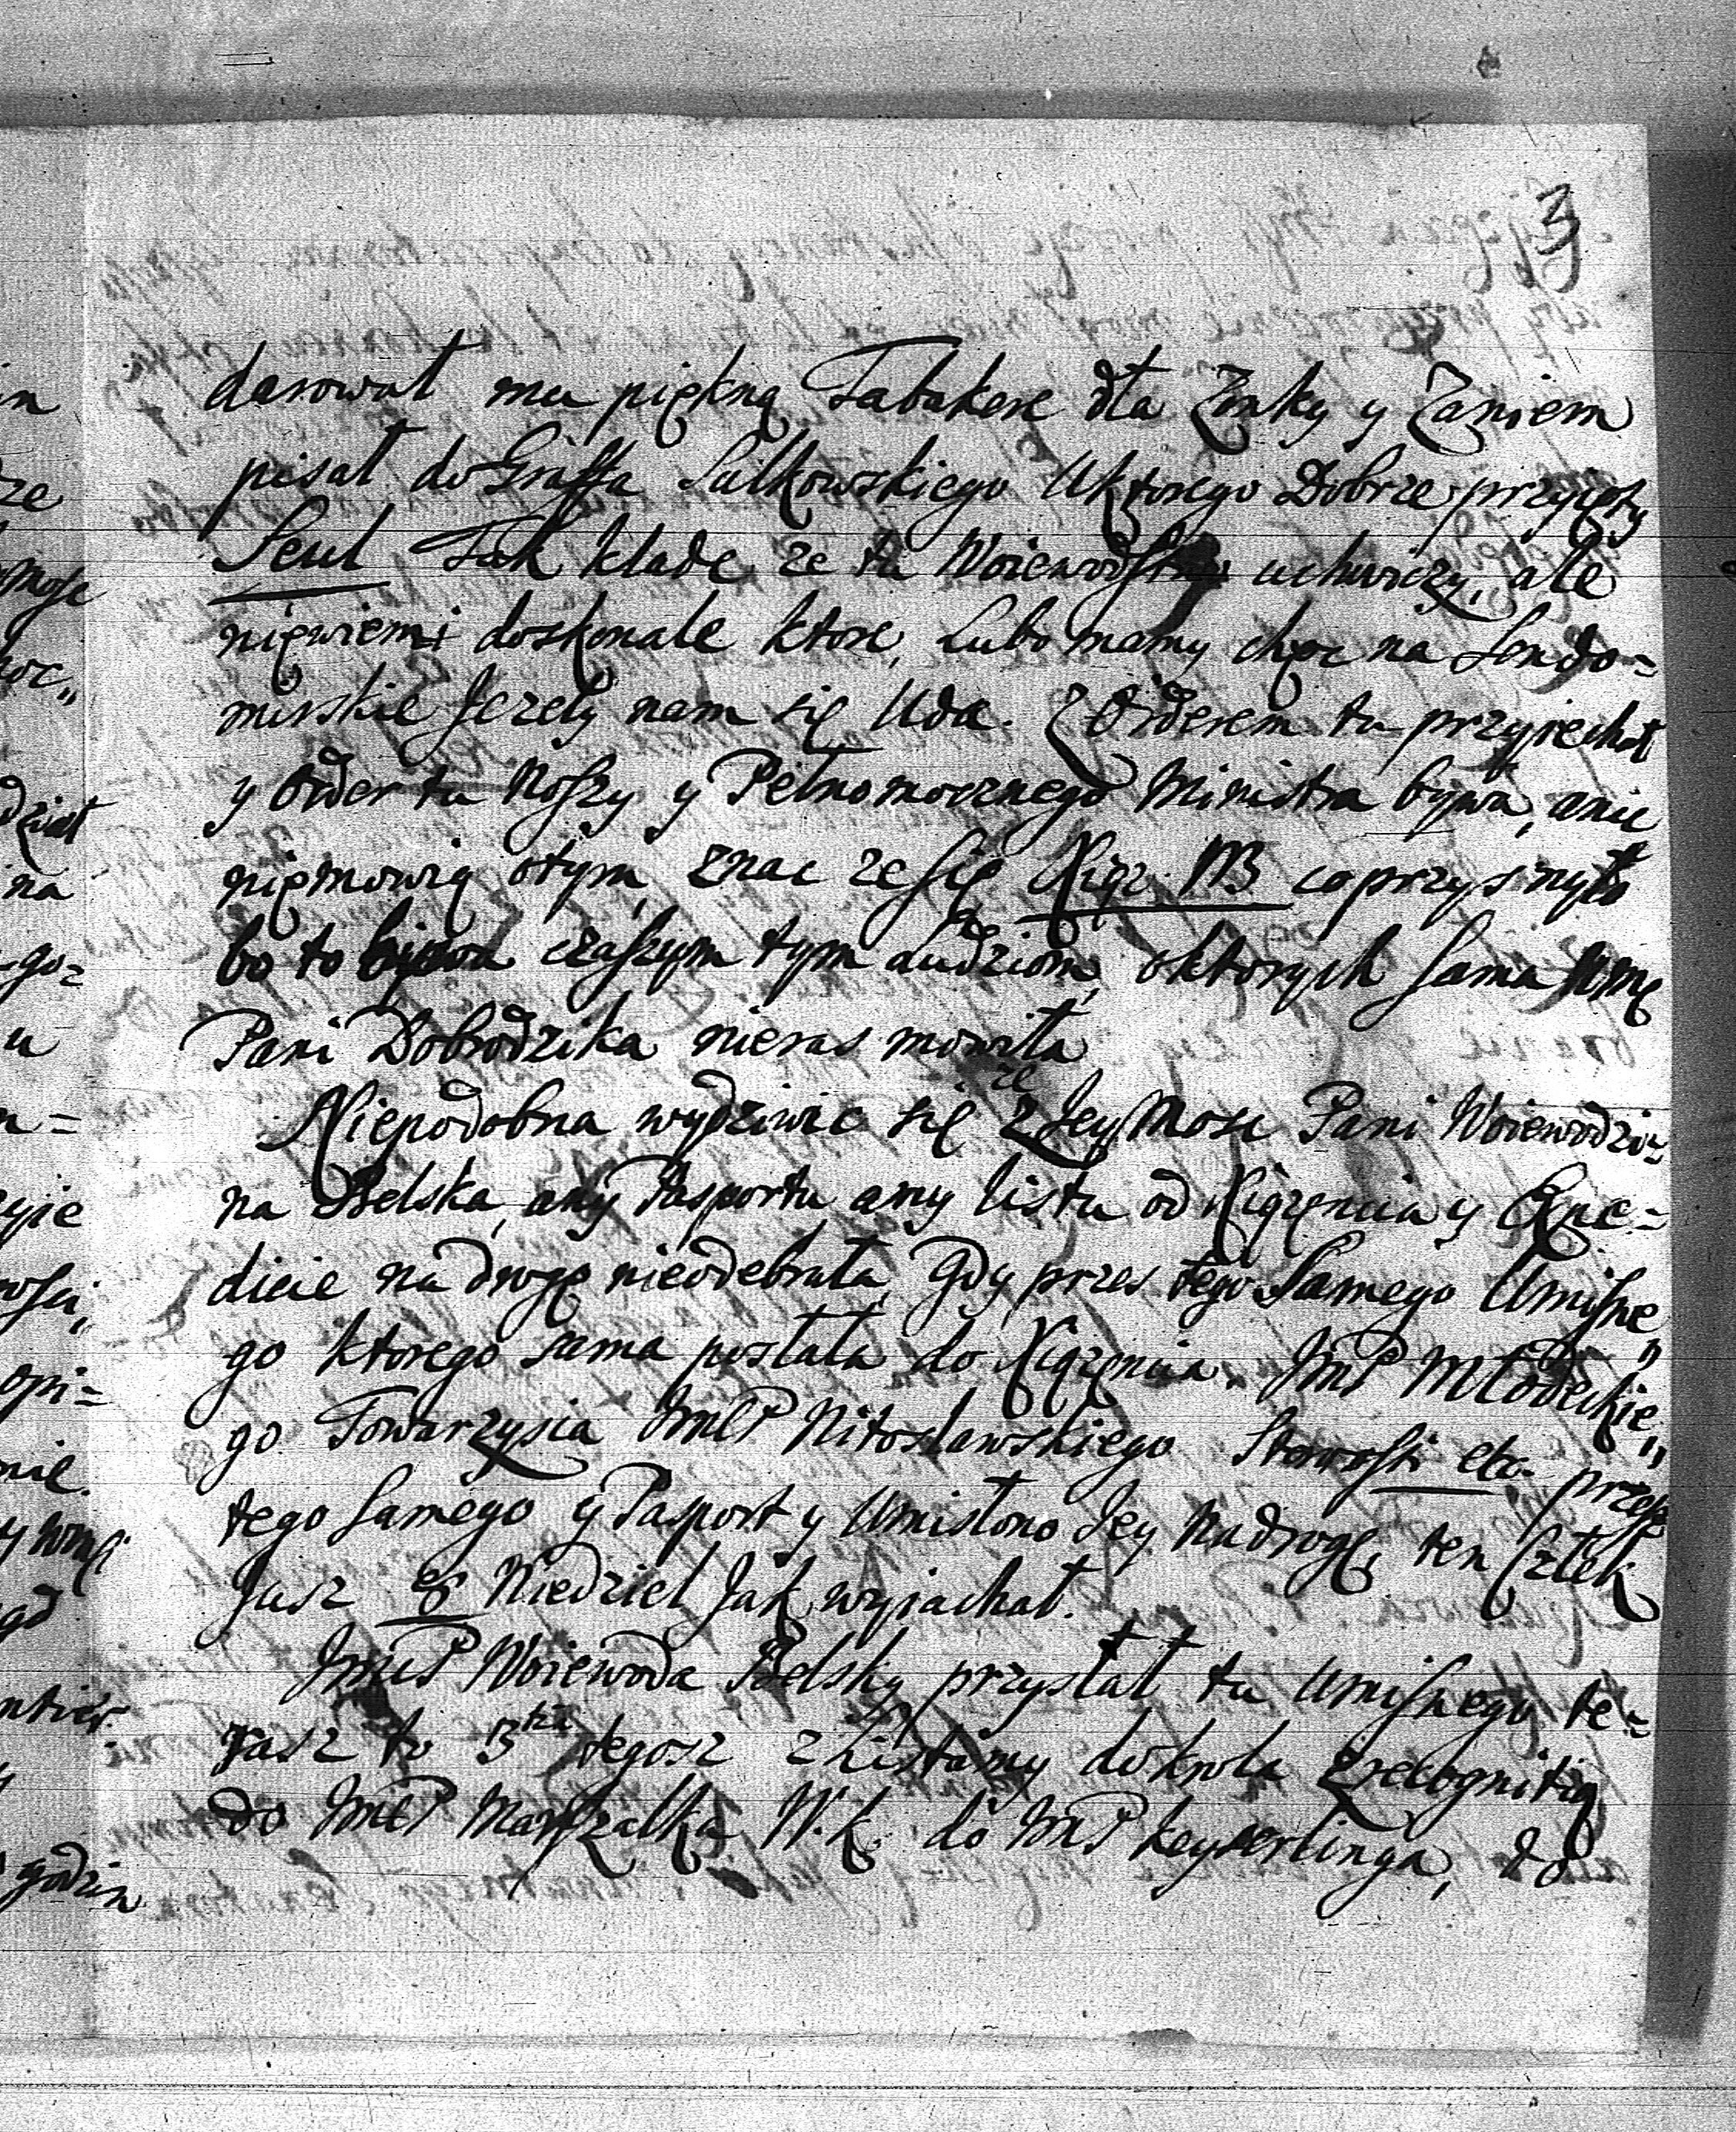 3
darował mu piękną Tabakere dla Zonky y Zaniem
pisał do Graffa Sulkowskiego Uktorego Dobrze przyięty
Seul Tak klade ze tu Woiewodstwo uchwiczy, ale
niewiem doskonale ktore, Lubo mamy chęc na Sendo=
mirskie Jezely nam się Uda. Z Orderem tu przyiechał
y Order tu Noszy y Pełnomocznego Ministra bywa, anic
niemowią otym, znac ze się Xiąz. WB coprzysnyło
bo to bywa czaszym tym Ludziom, oktorych sama WMę
Pani Dobrodzika nieras mowiła
Niepodobna wydziwic się ze Jey Mosc Pani Woiewodzi=
na Belska, any Pasportu amy listu od Xiązencia y Expe=
dicie na drogę nieodebrała, Gdy przes tego Samego Umisne„
go ktorego sama posłała do Xiązencia. JmP Młodeckie„
go Towarzysia JmCP Nitosławskiego Starosti etc. przesz
tego Samego y Pasport y Umislono Jey Nadrogę, ten Człek
Jusz 8 Niedziel Jak wyiachał.
JmCP Woiewoda Belsky przysłał tu Umisnego te=
rasz to 3tia tegosz z Listamy do krola z recognitią
do JmCP Marszałka W.K. do JmP Keyserlinga, do